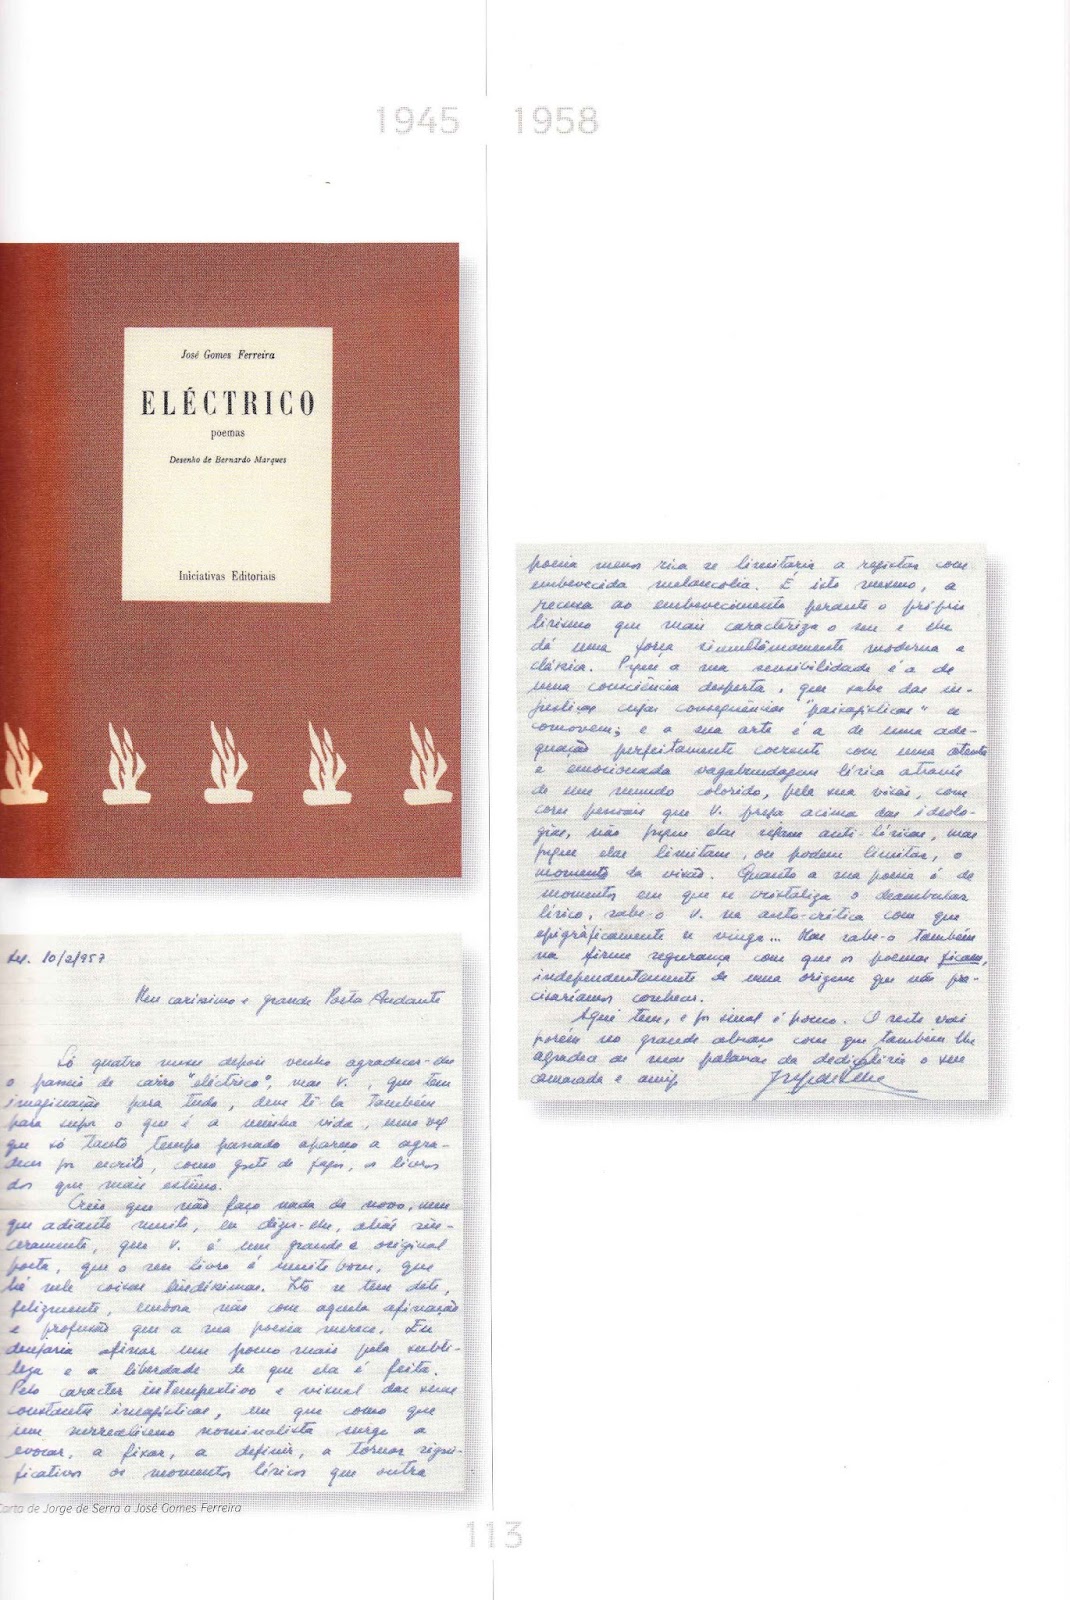 1945 1958
José Gomes Ferreira
ELÉCTRICO
poemas
Desenho de Bernardo Marques
Iniciativas Editoriais
Lx. 10/2/957
Meu caríssimo e grande Poeta Andante
Só quatro meses depois venho agradecer-lhe
o passeio de carro "eléctrico", mas V., que tem
imaginação para tudo, deve tê-la também
para supor o que é a minha vida, uma vez
que só tanto tempo passado apareço a agra-
decer por escrito, como gosto de fazer, os livros
dos que mais estimo.
Creio que não faço nada de novo, nem
que adiante muito, em dizer-lhe, aliás sin-
ceramente, que V. é um grande e original
poeta, que o seu livro é muito bom, que
há nele coisas lindíssimas. Isto se tem dito,
felizmente, embora não com aquela afinação
e profusão que a sua poesia merece. Eu
desejaria afinar um pouco mais pela subti-
leza e a liberdade de que ela é feita.
Pelo caracter intempestivo e visual das suas
constantes imagísticas, em que como que
um surrealismo nominalista surge a
evocar, a fixar, a definir, a tornar signi-
ficativos os momentos líricos que outra
poesia menos rica se limitaria a registar com
embevecida melancolia. É isto mesmo, a
recusa ao embevecimento perante o próprio
lirismo que mais caracteriza o seu e lhe
dá uma força simultâneamente moderna e
clássica. Porque a sua sensibilidade é a de
uma consciência desperta, que sabe das in-
justiças cujas consequências "paisagísticas" a
comovem; e a sua arte é a de uma ade-
quação perfeitamente coerente com uma atenta
e emocionada vagabundagem lírica através
de um mundo colorido, pela sua visão, com
cores pessoais que V. preza acima das ideolo-
gias, não porque elas sejam anti-líricas, mas
porque elas limitam, ou podem limitar, o
momento da visão. Quanto a sua poesia é de
momentos em que se cristaliza o deambular
lírico, sabe-o V. na auto-crítica com que
epigràficamente se vinga... Mas sabe-o também
na firme segurança com que os poemas ficam,
independentemente de uma origem que não pre-
cisaríamos conhecer.
Aqui tem, e por sinal é pouco. O resto vai
porém no grande abraço com que também lhe
agradece as suas palavras da dedicatória o seu
camarada e amigo
Jorge de Sena
Carta de Jorge de Serra a José Gomes Ferreira
113